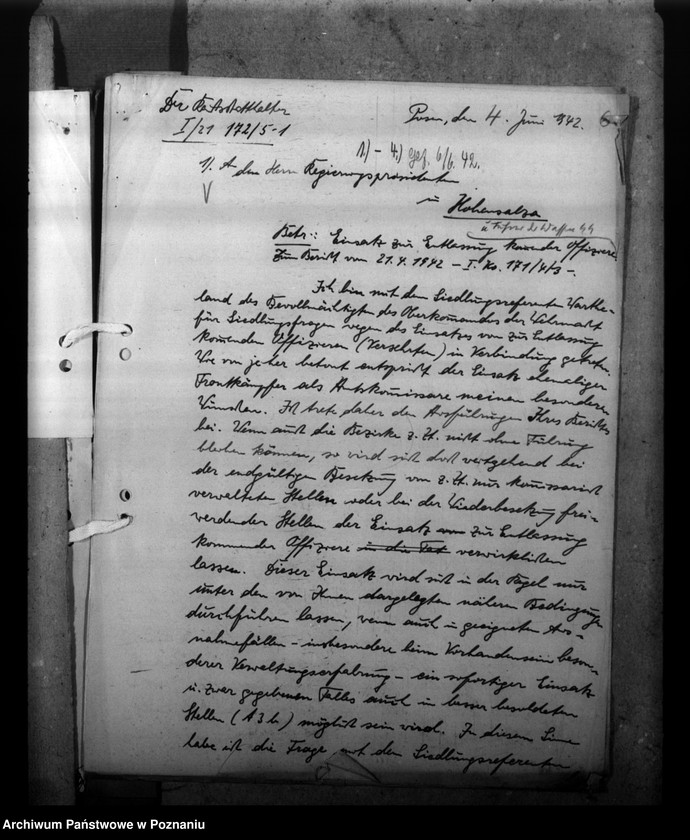 Der Reichsstatthalter
I/21 172/5-1
Posen, den 4. Juni 1942.
1.) - 4.) gef. 6/6. 42.
1). An den Herrn Regierungspräsidenten
in Hohensalza
u Führer der Waffen SS
Betr.: Einsatz zur Entlassung kommender Offiziere.
Zum Bericht vom 21.4.1942 – I. Ko. 171/4/3 –.
Ich bin mit dem Siedlungsreferenten Warthe-
land des Bevollmächtigten des Oberkommandos der Wehrmacht
für Siedlungsfragen wegen des Einsatzes von zur Entlassung
kommenden Offizieren (Versehrten) in Verbindung getreten.
Wie von jeher betont entspricht der Einsatz ehemaliger
Frontkämpfer als Amtskommissare meinen besonderen
Wünschen. Ich trete daher den Ausführungen Ihres Berichts
bei. Wenn auch die Bezirke z. Zt. nicht ohne Führung
bleiben können, so wird sich doch weitgehend bei
der endgültigen Besetzung von z. Zt. nur kommissarisch
verwalteten Stellen oder bei der Wiederbesetzung frei-
werdender Stellen der Einsatz von zur Entlassung
kommender Offiziere in die Tat verwirklichen
lassen. Dieser Einsatz wird sich in der Regel nur
unter den von Ihnen dargelegten näheren Bedingungen
durchführen lassen, wenn auch in geeigneten Aus-
nahmefällen – insbesondere beim Vorhandensein beson-
derer Verwaltungserfahrung – ein sofortiger Einsatz
u. zwar gegebenen Falles auch in besser besoldeten
Stellen (A 3 b) möglich sein wird. In diesem Sinne
habe ich die Frage mit dem Siedlungsreferenten
Archiwum Państwowe w Poznaniu